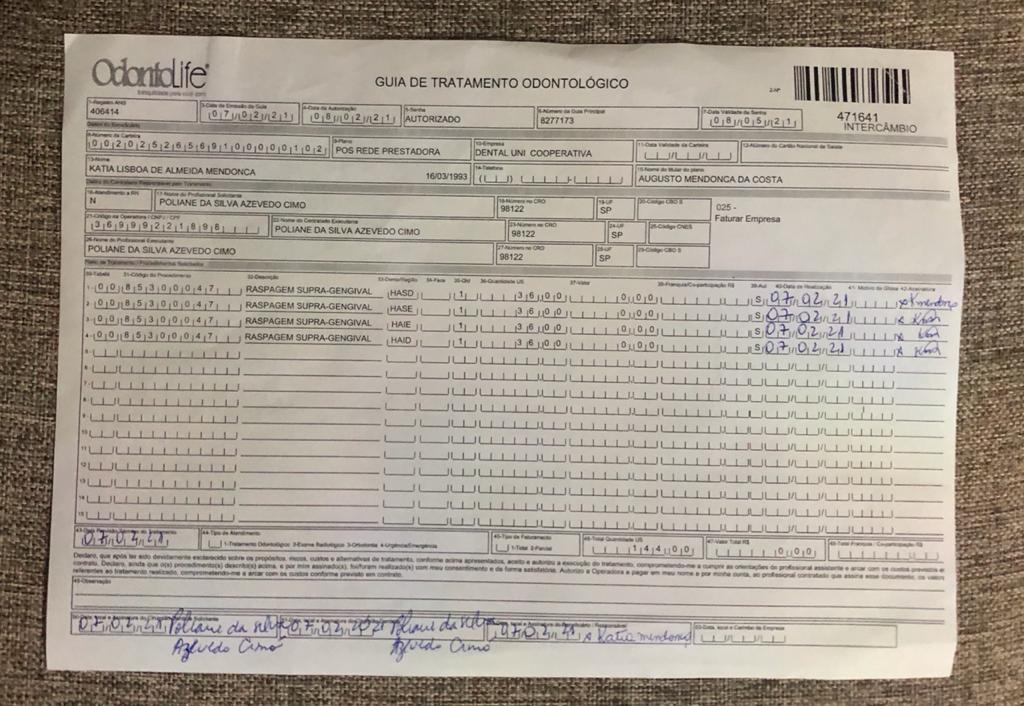 OdontoLife®
GUIA DE TRATAMENTO ODONTOLÓGICO
2-Nº
471641
INTERCÂMBIO
1-Registro ANS
406414
3-Data de Emissão da Guia
07/02/21
4-Data da Autorização
08/02/21
5-Senha
AUTORIZADO
6-Número da Guia Principal
8277173
7-Data Validade da Senha
08/05/21
Dados do Beneficiário
8-Número da Carteira
00202526569100000102
9-Plano
POS REDE PRESTADORA
10-Empresa
DENTAL UNI COOPERATIVA
11-Data Validade da Carteira
12-Número do Cartão Nacional de Saúde
13-Nome
KATIA LISBOA DE ALMEIDA MENDONCA 16/03/1993
14-Telefone
15-Nome do titular do plano
AUGUSTO MENDONCA DA COSTA
Dados do Contratado Responsável pelo Tratamento
16-Atendimento a RN
N
17-Nome do Profissional Solicitante
POLIANE DA SILVA AZEVEDO CIMO
18-Número no CRO
98122
19-UF
SP
20-Código CBO S
025 -
Faturar Empresa
21-Código na Operadora / CNPJ / CPF
36999221898
22-Nome do Contratado Executante
POLIANE DA SILVA AZEVEDO CIMO
23-Número no CRO
98122
24-UF
SP
25-Código CNES
26-Nome do Profissional Executante
POLIANE DA SILVA AZEVEDO CIMO
27-Número no CRO
98122
28-UF
SP
29-Código CBO S
Plano de Tratamento / Procedimentos Solicitados
30-Tabela 31-Código do Procedimento 32-Descrição 33-Dente/Região 34-Face 35-Qtd 36-Quantidade US 37-Valor 38-Franquia/Co-participação R$ 39-Aut 40-Data de Realização 41- Motivo da Glosa 42-Assinatura
1- 00 85300047 RASPAGEM SUPRA-GENGIVAL HASD 1 36,00 0,00 S 07/02/21 x K mendonç
2- 00 85300047 RASPAGEM SUPRA-GENGIVAL HASE 1 36,00 0,00 S 07/02/21
3- 00 85300047 RASPAGEM SUPRA-GENGIVAL HAIE 1 36,00 0,00 S 07/02/21
4- 00 85300047 RASPAGEM SUPRA-GENGIVAL HAID 1 36,00 0,00 S 07/02/21
5-
6-
7-
8-
9-
10-
11-
12-
13-
14-
15-
07/02/21
44-Tipo de Atendimento
1-Tratamento Odontológico 2-Exame Radiológico 3-Ortodontia 4-Urgência/Emergência
45-Tipo de Faturamento
1-Total 2-Parcial
46-Total Quantidade US
144,00
47-Valor Total R$
0,00
48-Total Franquia / Co-participação R$
Declaro, que após ter sido devidamente esclarecido sobre os propósitos, riscos, custos e alternativas de tratamento, conforme acima apresentados, aceito e autorizo a execução do tratamento, comprometendo-me a cumprir as orientações do profissional assistente e arcar com os custos previstos em
contrato. Declaro, ainda que o(s) procedimento(s) descrito(s) acima, e por mim assinado(s), foi/foram realizado(s) com meu consentimento e de forma satisfatória. Autorizo a Operadora a pagar em meu nome e por minha conta, ao profissional contratado que assina esse documento, os valores
referentes ao tratamento realizado, comprometendo-me a arcar com os custos conforme previsto em contrato.
49-Observação
07/02/21 Poliane da silva
Azevedo Cimo
07/02/2021 Poliane da silva
Azevedo Cimo
07/02/21 x Katia mendonç
53-Data, local e Carimbo da Empresa